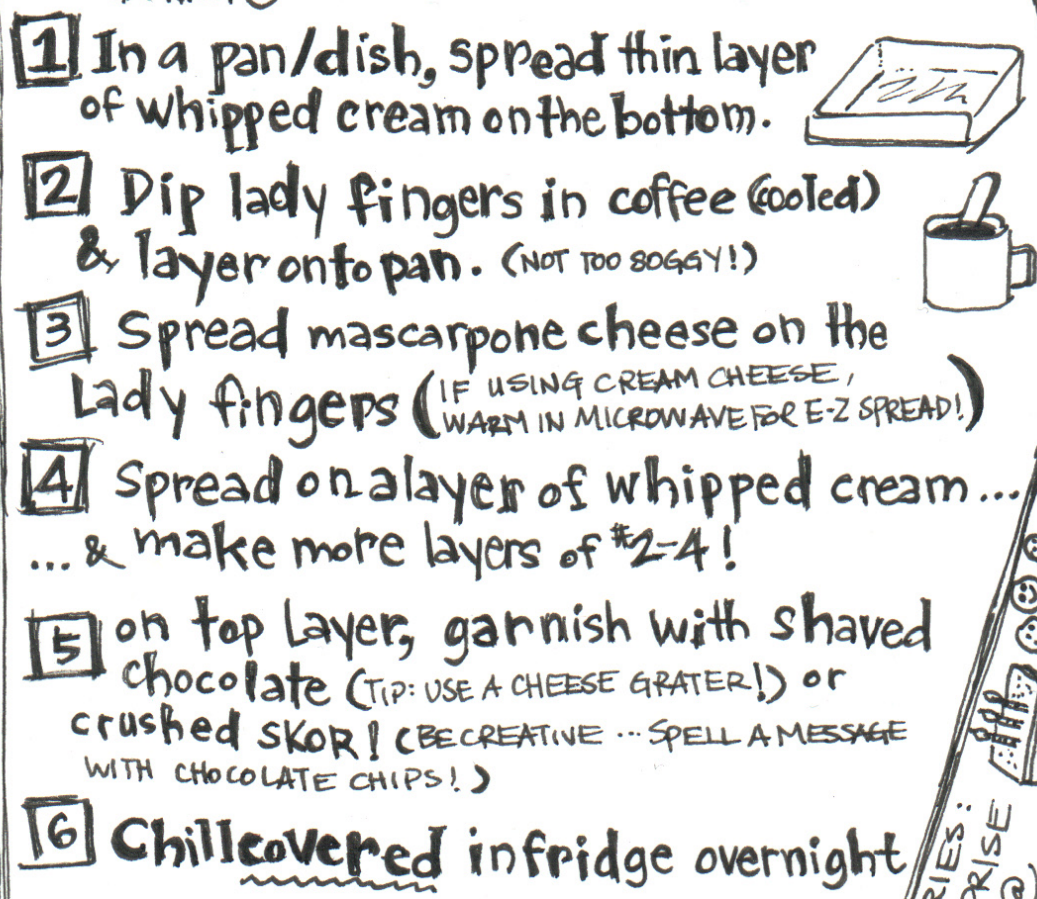 1 In a pan/dish, spread thin layer
of whipped cream on the bottom.
2 Dip lady fingers in coffee (cooled)
& layer onto pan. (NOT TOO SOGGY!)
3 Spread mascarpone cheese on the
Lady fingers (IF USING CREAM CHEESE,
WARM IN MICROWAVE FOR E-Z SPREAD!)
4 Spread on a layer of whipped cream...
...& make more layers of #2-4!
5 on top Layer, garnish with shaved
chocolate (TIP: USE A CHEESE GRATER!) or
crushed SKOR! (BE CREATIVE ... SPELL A MESSAGE
WITH CHOCOLATE CHIPS!)
6 Chill covered in fridge overnight
RIES:
PRISE
@)